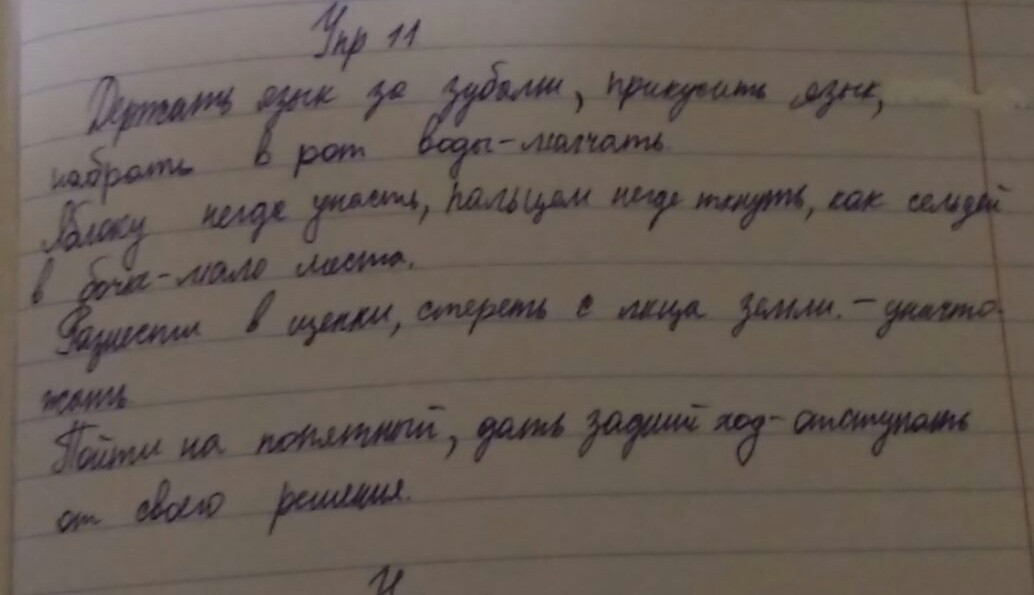 Упр 11
Держать язык за зубами, прикусить язык,
набрать в рот воды-молчать.
Яблоку негде упасть, пальцем негде ткнуть, как сельдей
в бочке-мало места.
Разнести в щепки, стереть с лица земли. - уничто-
жать
Пойти на попятный, дать задний ход-отступать
от своего решения.